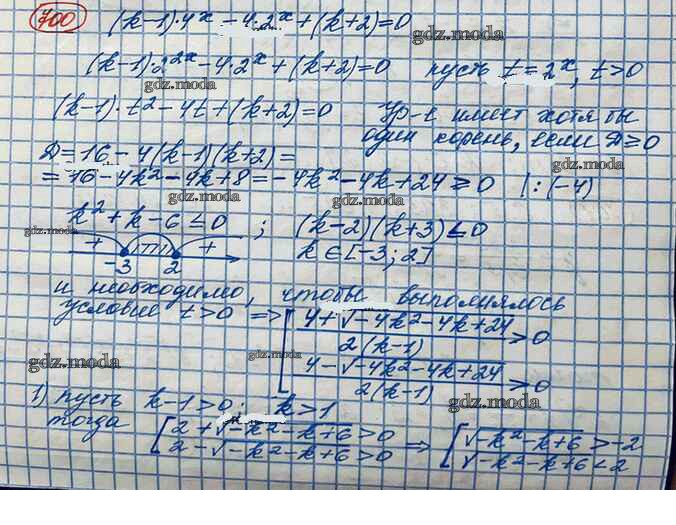 700 (k-1)·4ˣ - 4·2ˣ + (k+2) = 0
gdz.moda
(k-1)·2²ˣ - 4·2ˣ + (k+2) = 0 пусть t = 2ˣ, t > 0
gdz.moda
(k-1)·t² - 4t + (k+2) = 0 Ур-е имеет хотя бы
один корень, если D ≥ 0
D = 16 - 4(k-1)(k+2) =
gdz.moda
= 16 - 4k² - 4k + 8 = -4k² - 4k + 24 ≥ 0 | : (-4)
gdz.moda
gdz.moda
k² + k - 6 ≤ 0 ; (k-2)(k+3) ≤ 0
gdz.moda
+ +
-3 2
k ∈ [-3; 2]
и необходимо, чтобы выполнялось
условие t > 0 => [ (4+√(-4k²-4k+24))/(2(k-1)) > 0
(4-√(-4k²-4k+24))/(2(k-1)) > 0
gdz.moda
gdz.moda
1) пусть k-1 > 0; k > 1
gdz.moda
тогда [ 2+√(-k²-k+6) > 0 => [ √(-k²-k+6) > -2
2-√(-k²-k+6) > 0 √(-k²-k+6) < 2
gdz.moda